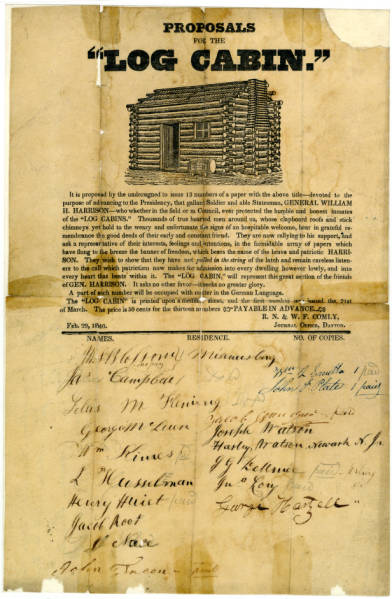 PROPOSALS
FOR THE
"LOG CABIN."
It is proposed by the undersigned to issue 13 numbers of a paper with the above title—devoted to the
purpose of advancing to the Presidency, that gallant Soldier and able Statesman, GENERAL WILLIAM
H. HARRISON—who whether in the field or in Council, ever protected the humble and honest inmates
of the "LOG CABINS." Thousands of true hearted men around us, whose clapboard roofs and stick
chimneys yet hold to the weary and unfortunate the signs of an hospitable welcome, bear in grateful re-
membrance the good deeds of their early and constant friend. They are now rallying to his support, and
ask a representative of their interests, feelings and intentions, in the formidable array of papers which
have flung to the breeze the banner of freedom, which bears the name of the brave and patriotic HARRI-
SON. They wish to show that they have not pulled in the string of the latch and remain careless listen-
ers to the call which patriotism now makes for admission into every dwelling however lowly, and into
every heart that beats within it. The "LOG CABIN," will represent this great section of the friends
of GEN. HARRISON. It asks no other favor—needs no greater glory.
A part of each number will be occupied with matter in the German Language.
The "LOG CABIN" is printed upon a sheet, and the first number issued the 21st
of March. The price is 50 cents for the thirteen numbers PAYABLE IN ADVANCE.
R. N. & W. F. COMLY,
Feb. 29, 1840. JOURNAL OFFICE, DAYTON.
NAMES. RESIDENCE. NO. OF COPIES.
Miamisburg
Campbell
John 1 paid
George McLean
Joseph Watson
Wm
Harly, Watson, Newark N. J.
L Husselman
Jno Long paid
Henry paid
George Hartzell
Jacob Root
John